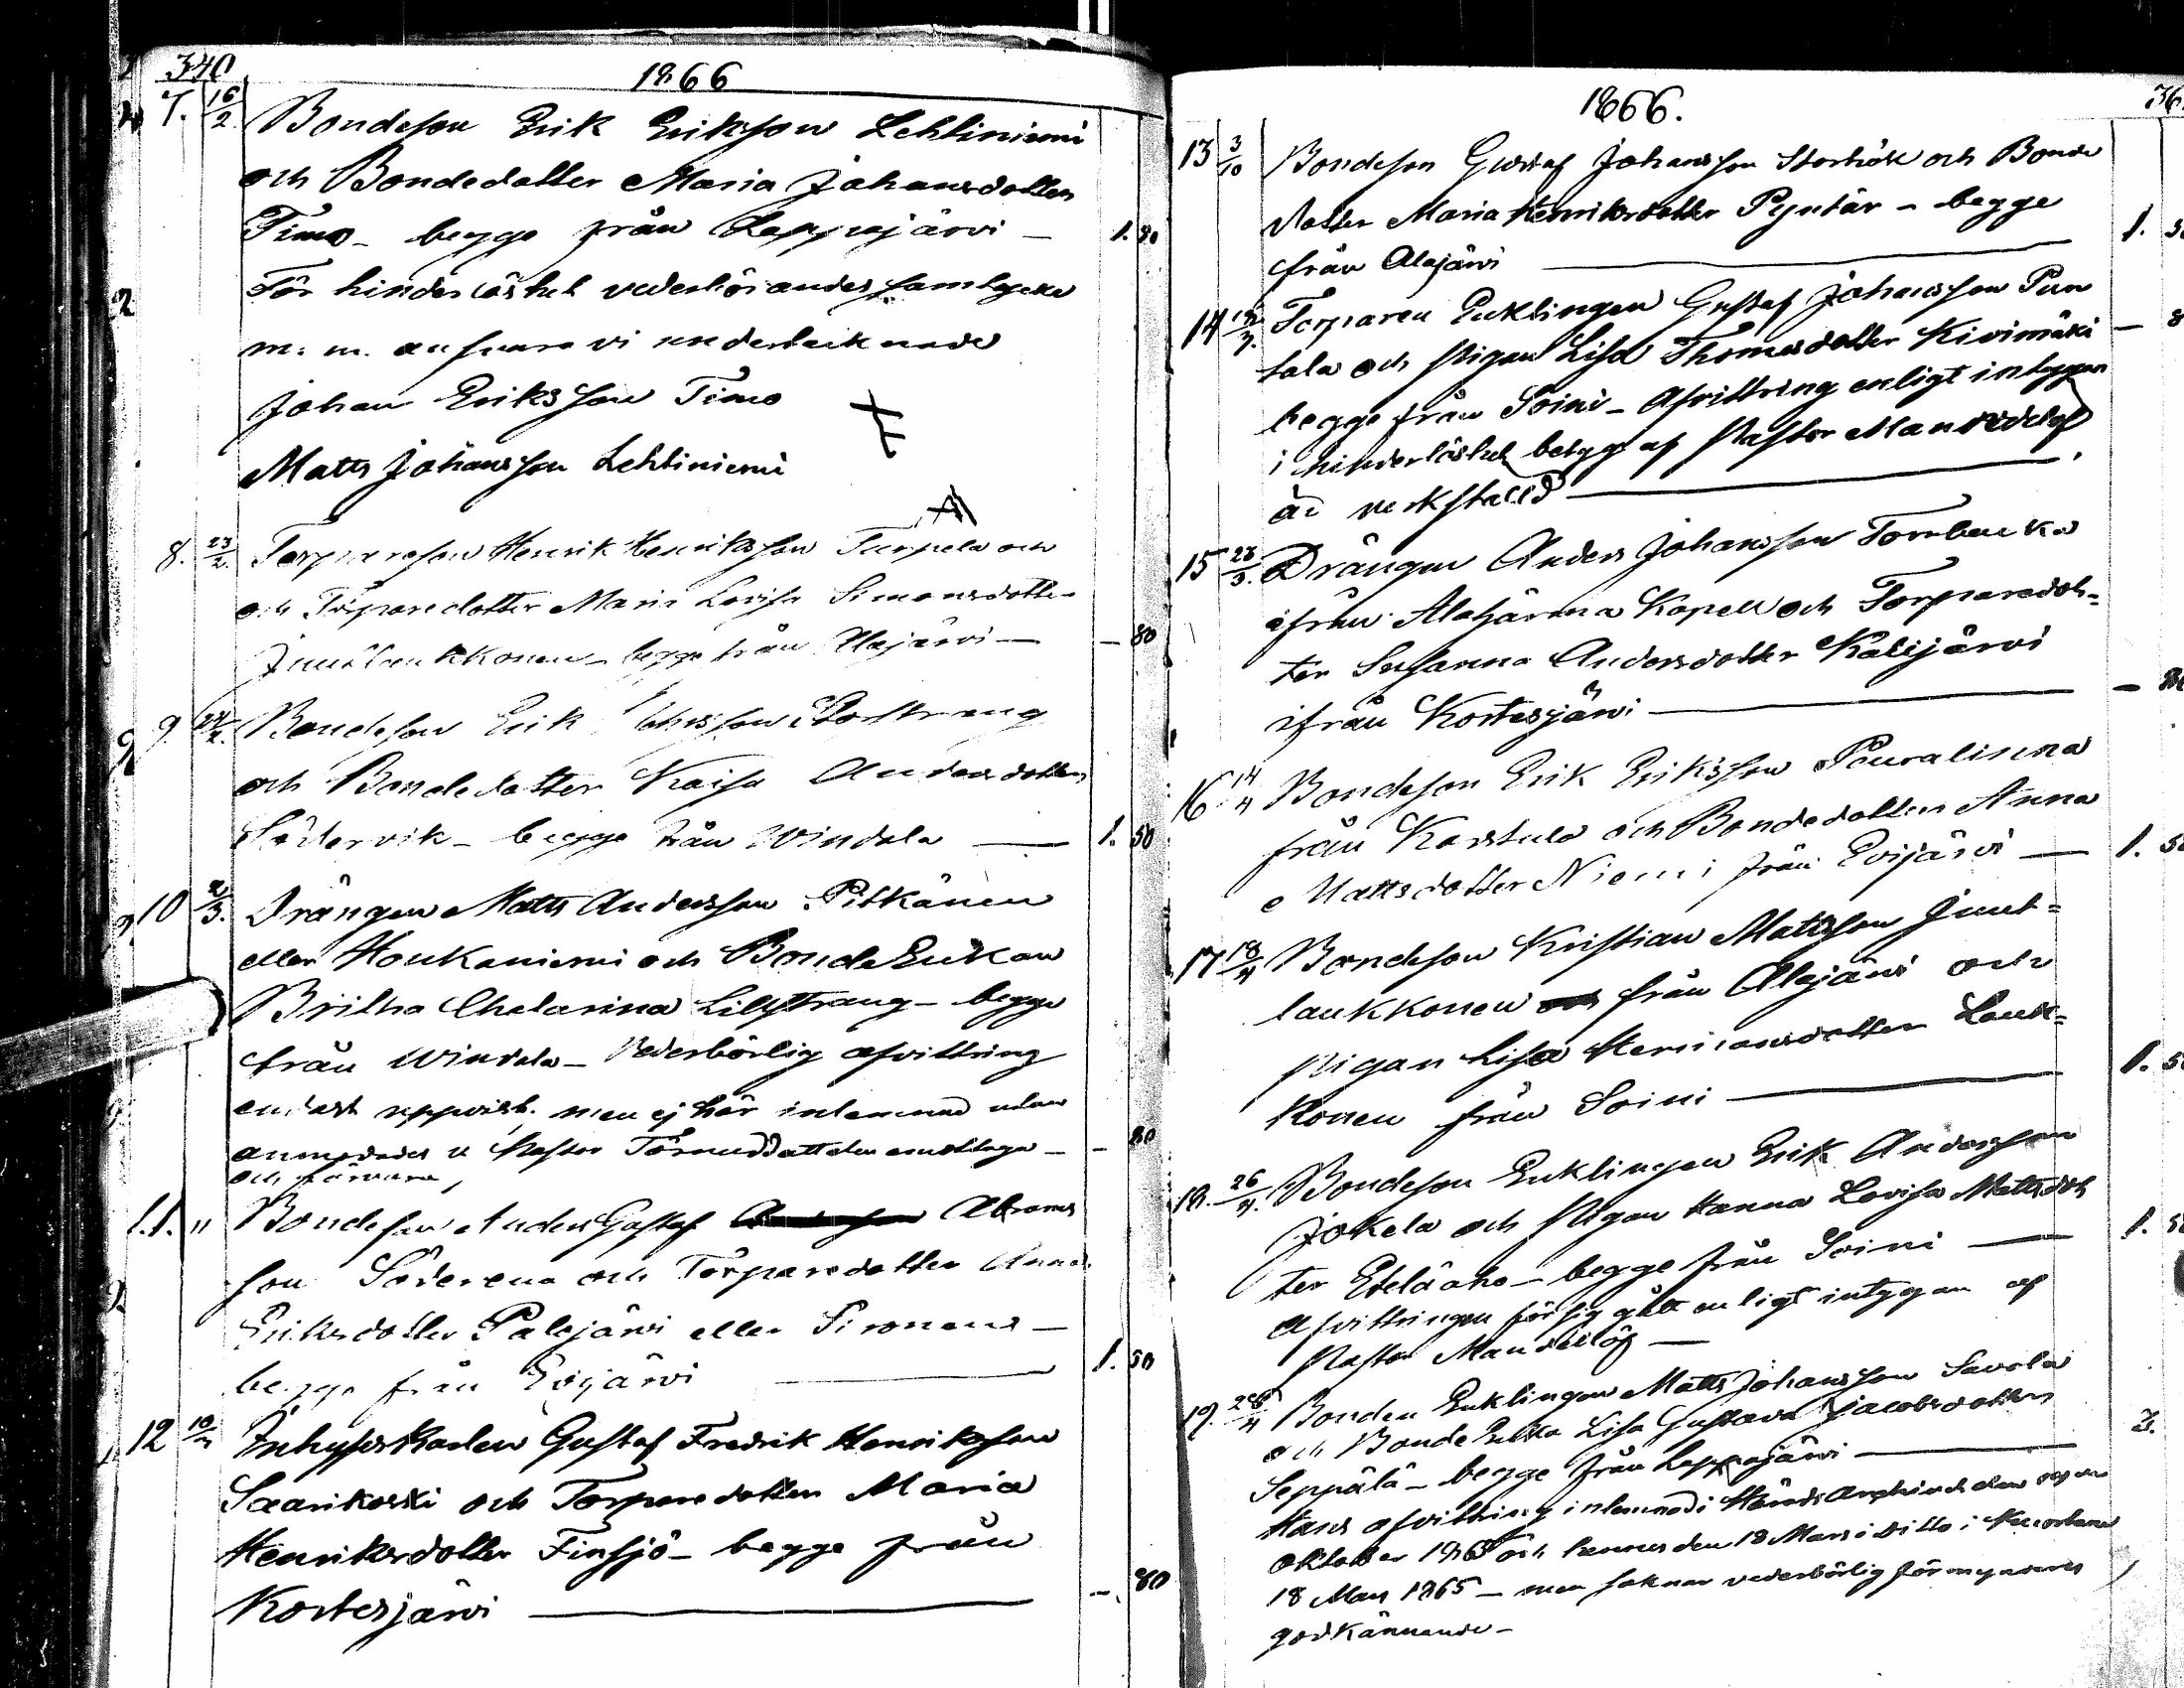 340
1866
7. 16/2 Bondeson Erik Eriksson Lehtiniemi
och Bondedotter Maria Johansdotter
Timo - begge från Lappajärvi - 1. 80
För hinderlöshet vederbörandes samtycke
m. m. ansvara vi undertecknade
Johan Eriksson Timo
Matts Johansson Lehtiniemi
8. 23/2 Torpareson Henrik Henriksson Turpela och
och Torparedotter Maria Lovisa Simonsdotter
Juustlaukkonen - begge från Alajärvi - - 80
9 24/2. Bondeson Erik Storstrang
och Bondedotter Kaisa Andersdotter
Södervik - begge från Windala - 1. 50
10 2/3. Drängen Matts Andersson Pitkänen
eller Honkaniemi och Bonde Enkan
Britha Chatarina Lillstrang - begge
från Windala - Vederbörlig afvittring
endast uppvist, men ej här inlemnad utan
anmodades v Pastor Törnudd att den emottaga - - 80
och förvara,
11. " Bondeson Anders Gustaf Abrams
son Söderena och Torparedotter Anna
Eriksdotter Palojärvi eller Sironen -
begge från Evijärvi 1. 50
12 Inhyseskarlen Gustaf Fredrik Henriksson
Saarikoski och Torparedotter Maria
Henriksdotter Finsjö - begge från
Kortesjärvi - 80
1866.
13 3/10 Bondeson Gustaf Johansson Storhök och Bonde
dotter Maria Henriksdotter Pyntär - begge
från Alajärvi 1.
14 Torparen Enklingen Gustaf Johansson Pun
tala och Pigan Lisa Thomasdotter Kivimäki -
begge från Soini - Afvittring enligt intygan
i hinderlöshets betyg af Pastor Mandellöf
är verkställd
15 23/3. Drängen Anders Johansson
ifrån Alahärma Kapell och Torparedot=
ter Susanna Andersdotter Kalijärvi
ifrån Kortesjärvi -
16 14/4 Bondeson Erik Eriksson Pouralinna
från Karstula och Bondedotter Anna
Mattsdotter Niemi från Evijärvi - 1.
17 18/4 Bondeson Kristian Mattsson Juust=
laukkonen från Alajärvi och
Pigan Lisa Hermansdotter Lauk=
konen från Soini 1.
18. 26/4. Bondeson Enklingen Erik Andersson
Jokela och Pigan Hanna Lovisa Mattsdot
ter Eteläaho - begge från Soini - 1.
Afvittringen försiggått enligt intygan af
Pastor Mandellöf -
19. 28/4 Bonden Enklingen Matts Johansson Savola
och Bonde Enka Lisa Gustava Jacobsdotter
Seppälä - begge från Lappajärvi - 3.
Hans afvittring inlemnad i Härads
Oktober 1865 och hennes den 18 Mars
18 Mars 1865 - men saknar vederbörlig förmyndares
godkännande -